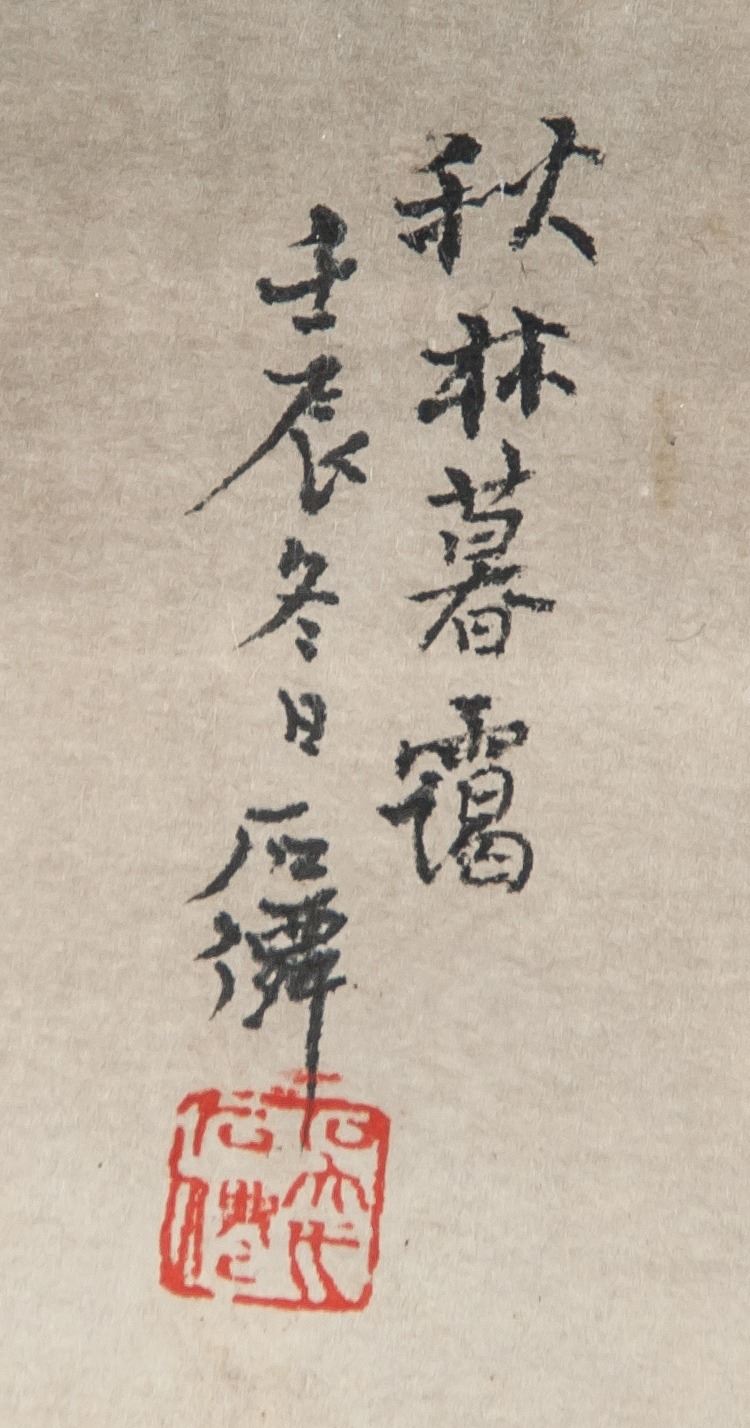 秋林暮靄
壬辰冬日石